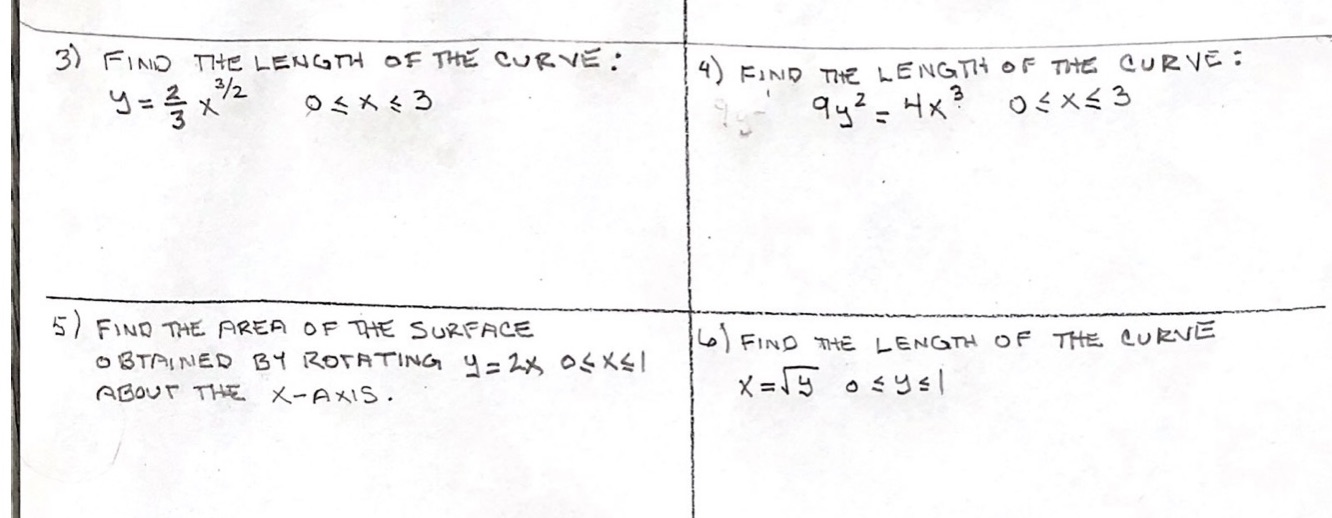 3) FIND THE LENGTH OF THE CURVE:
y = 2/3 x^3/2 0 ≤ x ≤ 3
4) FIND THE LENGTH OF THE CURVE:
9y² = 4x³ 0 ≤ x ≤ 3
5) FIND THE AREA OF THE SURFACE
OBTAINED BY ROTATING y = 2x, 0 ≤ x ≤ 1
ABOUT THE X-AXIS.
6) FIND THE LENGTH OF THE CURVE
x = √y 0 ≤ y ≤ 1